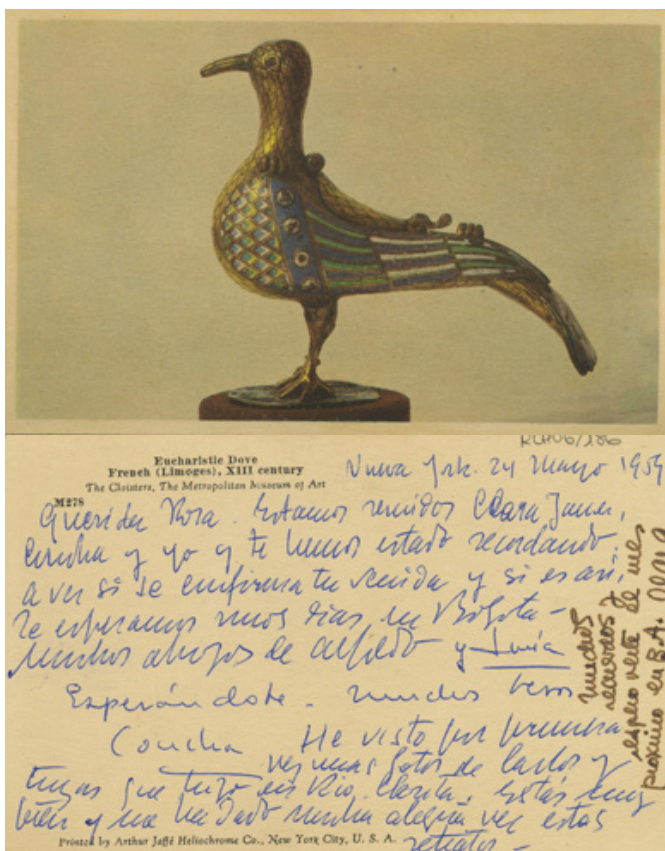 KCHV6/186
Eucharistic Dove
French (Limoges), XIII century
The Cloisters, The Metropolitan Museum of Art
M278
Nueva York. 24 Mayo 1959
Querida Rosa. Estamos reunidos Clara James,
Concha y yo y te hemos estado recordando,
a ver si se confirma tu venida y si es así,
te esperamos unos días en Bogotá -
Muchos abrazos de Alfredo y
Esperándote. muchos besos
Concha
He visto por primera
vez unas fotos de Carlos y
tuyas que trajo en Río, Clarita, estás muy
bien y me ha dado mucha alegría ver estos
retratos -
muchos
recuerdos y
espero verte el mes
próximo en B.A.
Printed by Arthur Jaffé Heliochrome Co., New York City, U. S. A.